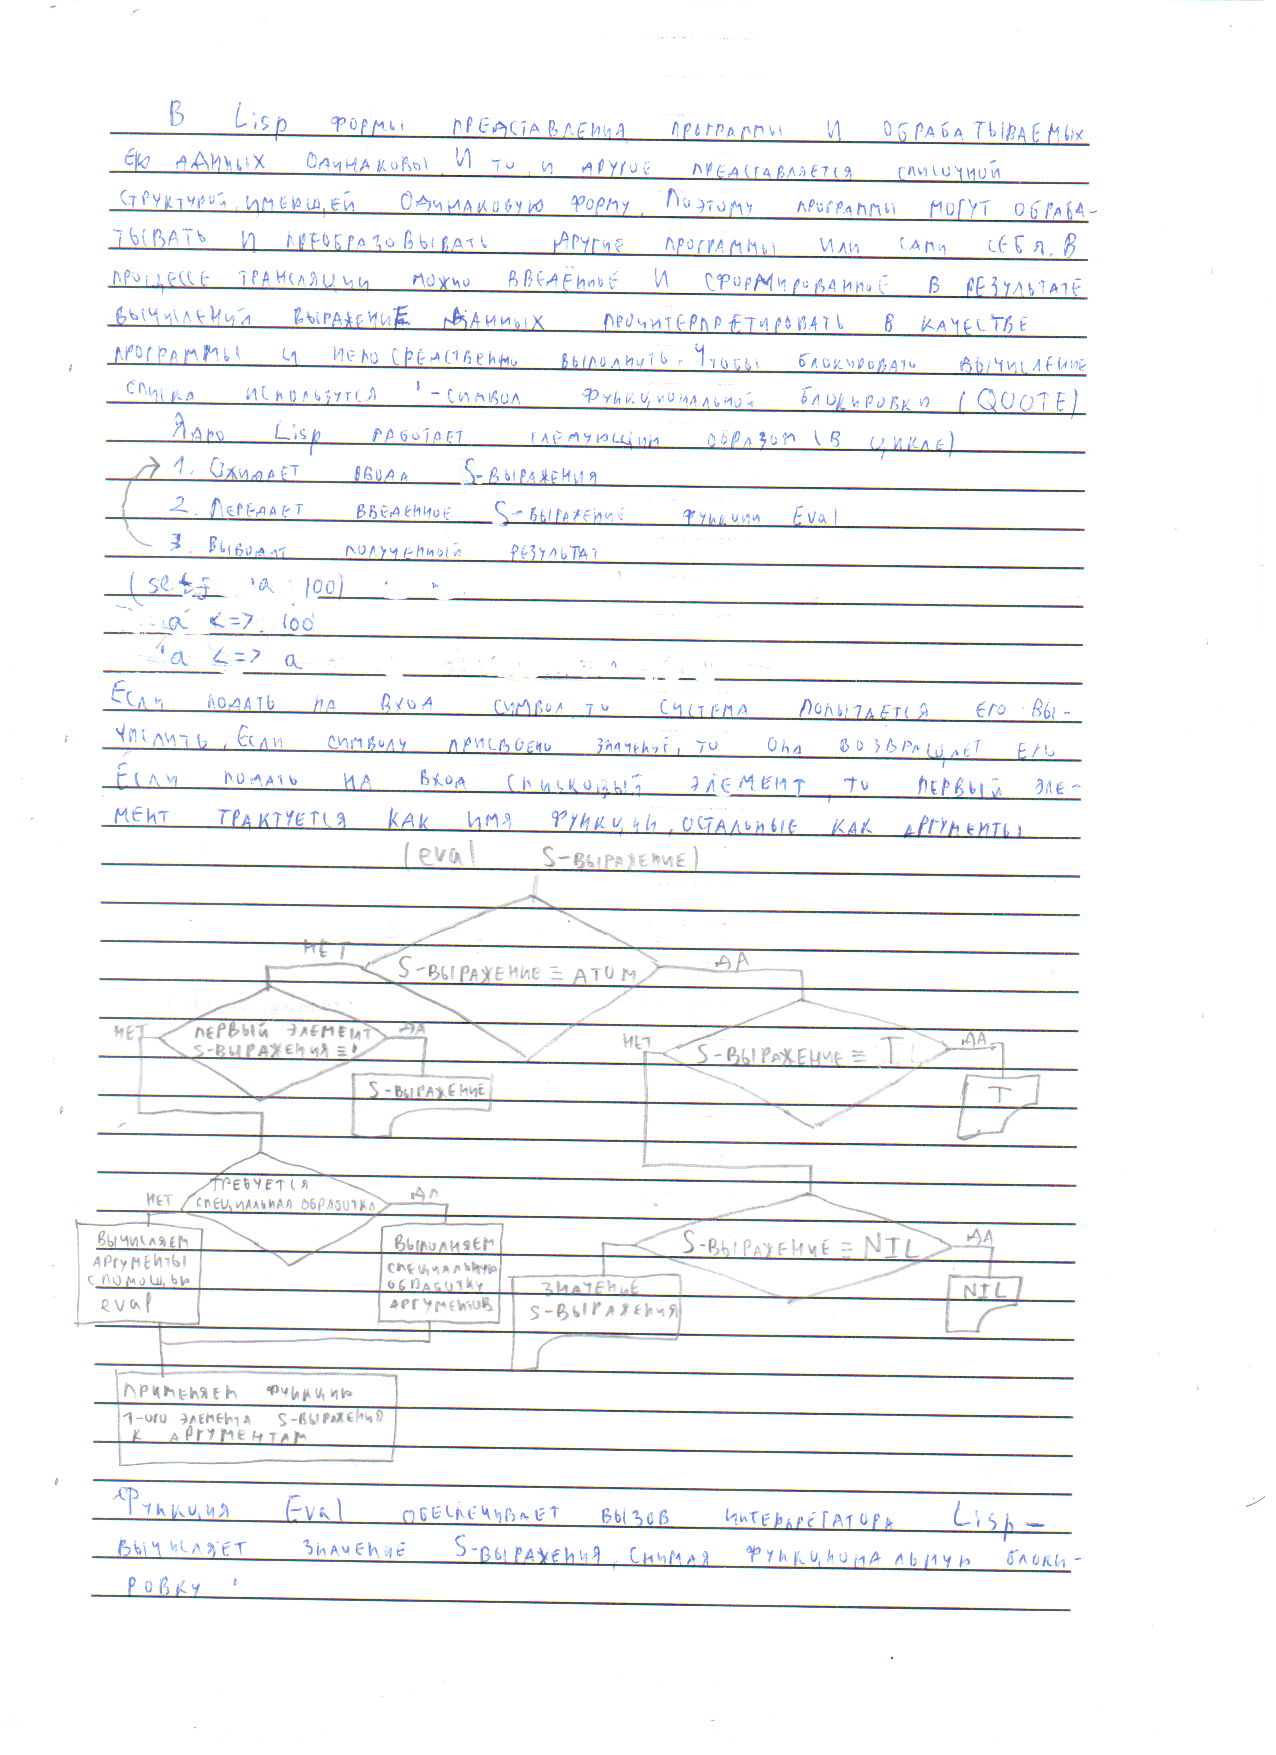 В Lisp формы представления программы и обрабатываемых
ею данных одинаковы. И то, и другое представляется списочной
структурой, имеющей одинаковую форму. Поэтому программы могут обраба-
тывать и преобразовывать другие программы или сами себя. В
процессе трансляции можно введённое и сформированное в результате
вычислений выражение данных проинтерпретировать в качестве
программы и непосредственно выполнить. Чтобы блокировать вычисление
списка использутся ' -символ функциональной блокировки (QUOTE)
Ядро Lisp работает следующим образом (в цикле)
1. Ожидает ввода S-выражения
2. Передает введенное S-выражение функции Eval
3. Выводит полученный результат
(setq 'a 100)
a <=> 100
'a <=> a
Если подать на вход символ, то система попытается его вы-
числить, Если символу присвоено значение, то она возвращает его
Если подать на вход списковый элемент, то первый эле-
мент трактуется как имя функции, остальные как аргументы
(eval S-выражение)
НЕТ
S-выражение ≡ АТОМ
ДА
НЕТ
первый элемент
S-выражения ≡ '
ДА
S-выражение
НЕТ
S-выражение ≡ T
ДА
T
НЕТ
требуется
специальная обработка
ДА
вычисляем
аргументы
с помощью
eval
Выполняем
специальную
обработку
аргументов
S-выражение ≡ NIL
ДА
значение
S-выражения
NIL
применяем функцию
1-ого элемента S-выражения
к аргументам
Функция Eval обеспечивает вызов интерпретатора Lisp -
вычисляет значение S-выражения, снимая функциональную блоки-
ровку '